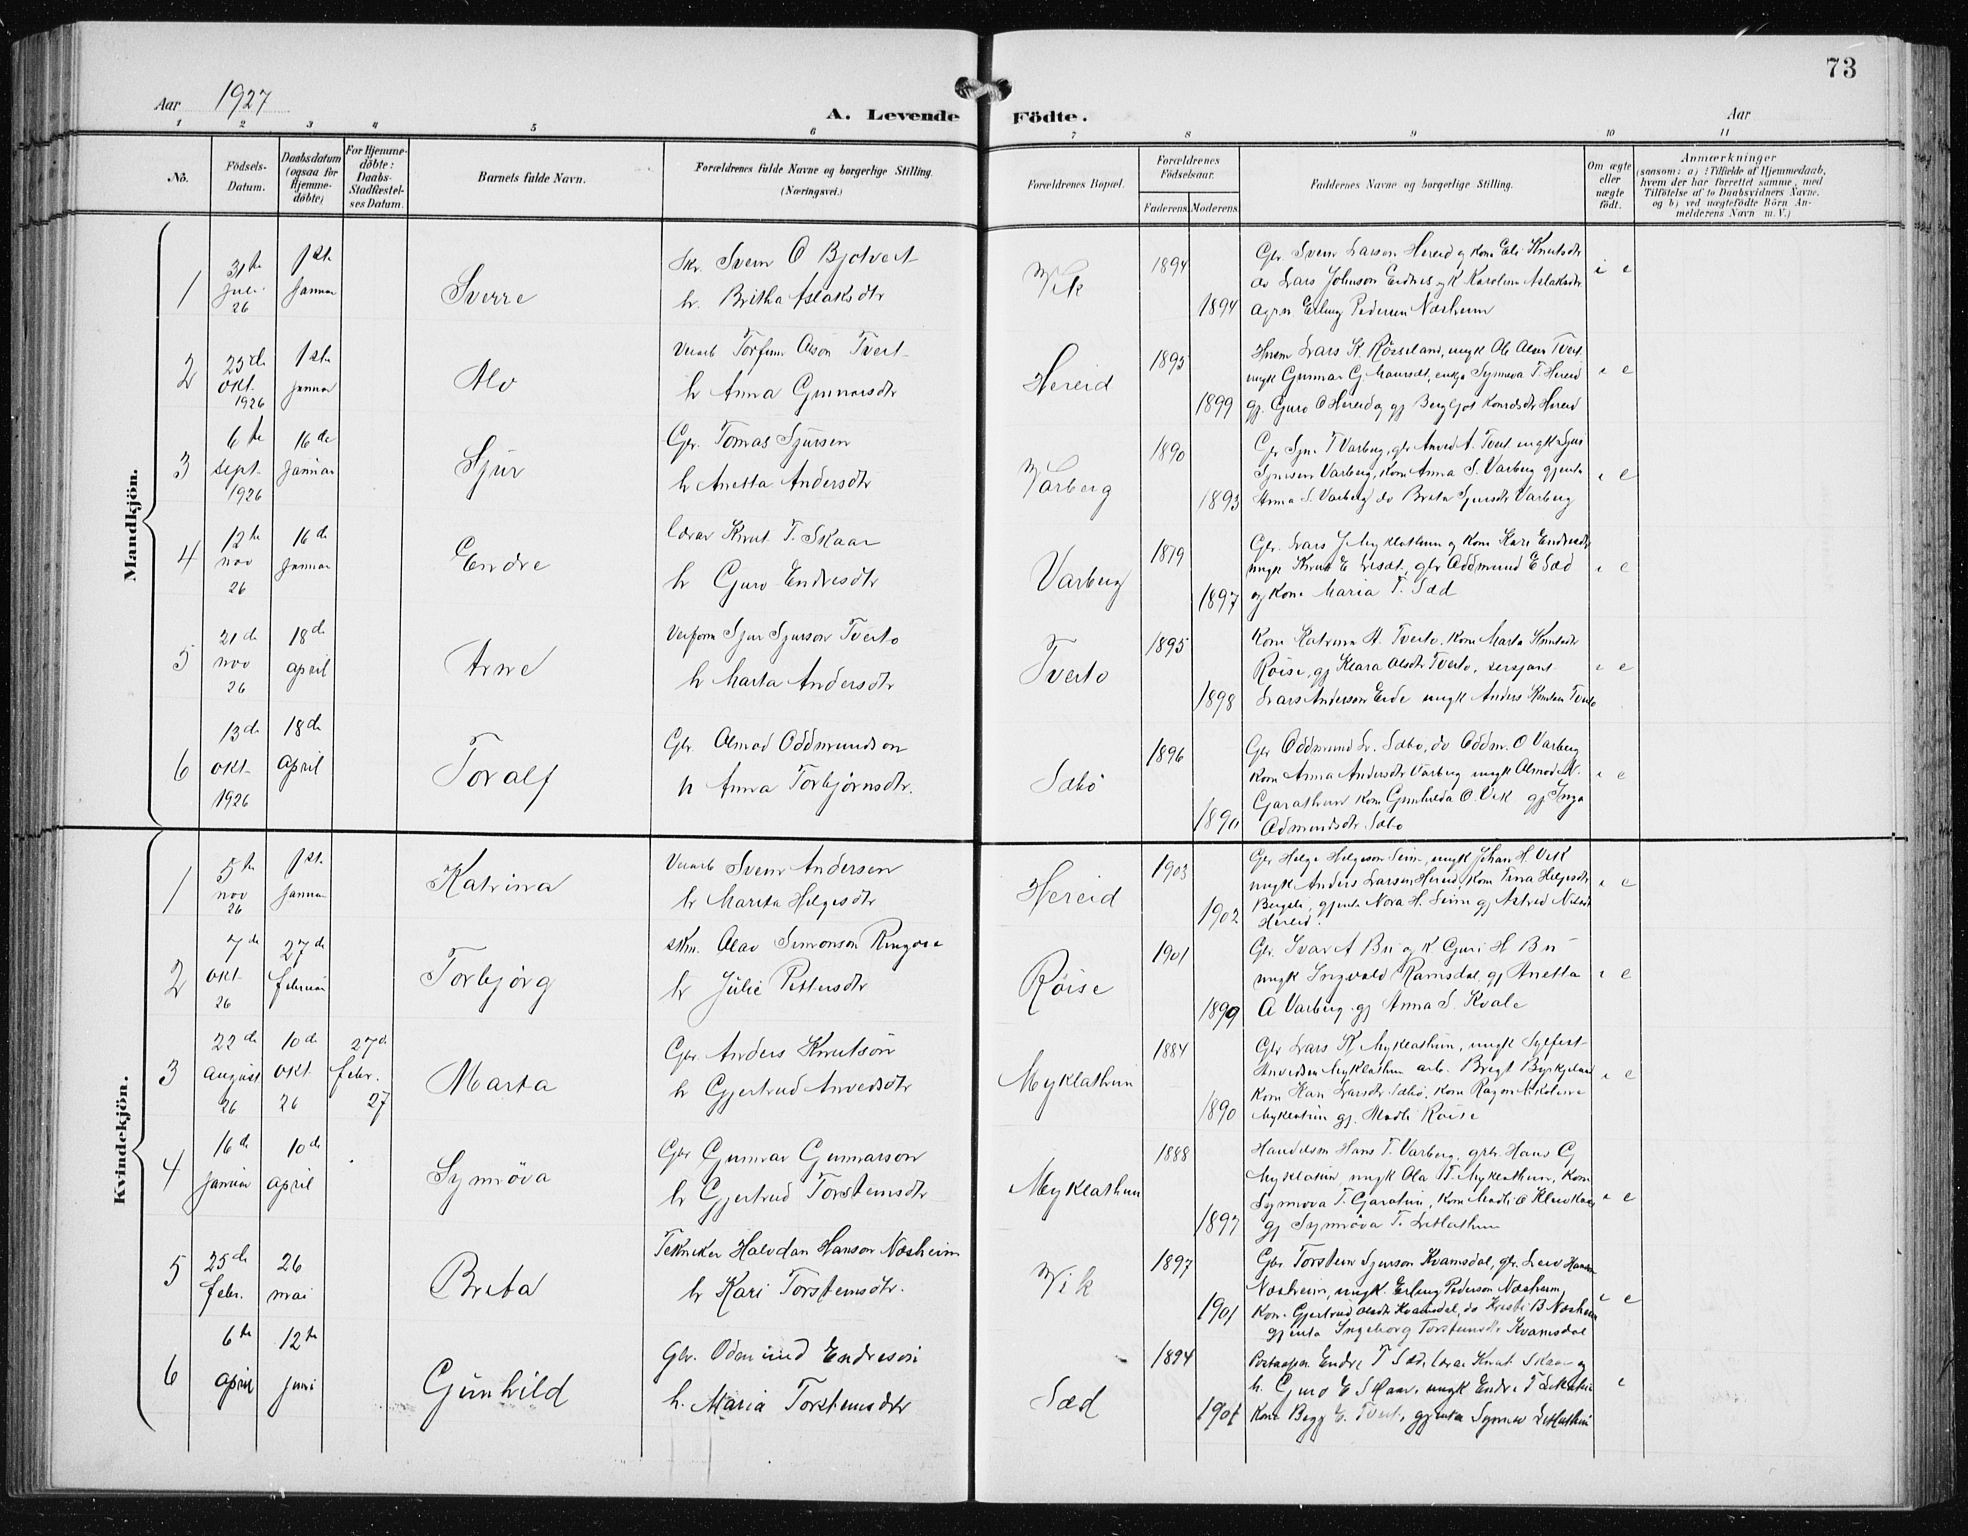 73
Aar 1927
A. Levende Födte.
Aar
1 2 3 4 5 6 7 8 9 10 11
No.
Födsels-Datum.
Daabsdatum (ogsaa for Hjemme-döbte)
For Hjemme-döbte: Daabs-Stadfæstel-ses Datum.
Barnets fulde Navn.
Forældrenes fulde Navne og borgerlige Stilling. (Næringsvei.)
Forældrenes Bopæl.
Forældrenes Födselsaar.
Faderens. Moderens.
Faddernes Navne og borgerlige Stilling.
Om ægte eller uægte födt.
Anmærkninger
(saasom: a) i Tilfælde af Hjemmedaab,
hvem der har forrettet samme, med
Tilföielse af to Daabsvidners Navne.
og b) ved uægtefödte Börn An-
melderens Navn m. V.)
Mandkjön.
1 31te juli 26 1ste januar Sverre
Skr. Svein O Bjotveit
h. Britha Aslaksdtr
Vik 1894 1894
Gbr Svein Larson Hereid og Kone Eli Knutsdtr
av Lars Johnson Eidnes og K Karolina Aslaksdtr
Erling Pedersen Næsheim
e
2 23de okt. 1926 1ste januar Alv
Torfinn Olson Tveit
h Anna Gunnarsdtr
Hereid 1895 1899
Lars K. Røiseland, ungk Ole Olsen Tveit
ungk Gunnar G. enkja Synneva T. Hereid
gj. Guro O Hereid og gj Bergljot Hereid
e
3 6te sept. 1926 16de januar Sjur
Gbr. Tomas Sjursen
h Anetta Andersdtr
Varberg 1890 1893
T Varberg, gbr Anved A. Tveit ungk Sjur
Sjursen Varberg, Kone Anna S. Varberg gjenta
Anna S. Varberg do Brita Sjursdtr Varberg
e
4 12te nov 26 16de januar Endre
Lærar Knut T. Skaar
h Guro Endresdtr
Varberg 1879 1897
Gbr. Lars J Myklathun og Kone Kari Endresdtr
ungk Knut E gbr Oddmund E Sæd
og Kone Maria T. Sæd
e
5 21de nov 26 18de april Arne
Sjur Sjurson Tveito
h Marta Andersdtr
Tveito 1895 1898
Kone Katrina A. Tveito. Kone Marta Knutsdtr
Røise, gj Klara Olsdtr Tveito, sersjant
Lars Anderson Eide ungk Anders Knutson Tveito
e
6 13de okt. 1926 18de april Toralf
Gbr. Almod Oddmundson
h Anna Torbjørnsdtr.
Sæbø 1896
Gbr Oddmund L. Sæbo, do Oddm. O Varberg
Kone Anna Andersdtr Varberg ungk Almod N.
Garathun Kone Gunhilda O. Vik gj Inga
Odmundsdtr Sæbo
e
Kvindekjön.
1 5te nov 26 1ste januar Katrina
Svein Andersen
h Marita Helgesdtr
Hereid 1903 1902
Gbr Helge Helgeson Seim, ungk Johan H. Vik
ungk Anders Larsen Hereid, Kone Helgesdtr
gjenta Nora H. Seim gj Astrid
Hereid.
e
2 7de okt. 26 27de februar Torbjørg
Olav Simonson
h Julie Pettersdtr
Røise 1901 1899
Gbr. Ivar A Bu og K Guri H Bu
ungk Ingvald Ramsdal gj Anetta
A Varberg. gj Anna S. Kvale
e
3 22de august 26 10de okt 26 27de febr. 27 Marta
Gbr. Anders Knutson
h Gjertrud Anvedsdtr
Myklathun 1884 1890
Gbr Lars K Myklathun, ungk Sylfest
Anvedsen Myklathun arb. Brigt Byrkjeland
Kone Kari Larsdtr Sæbø, Kone
Myklathun gj. Madli Røise
e
4 16de januar 10de april Synnöva
Gbr Gunnar Gunnarson
h Gjertrud Torsteinsdtr
Myklathun 1888 1897
Handelsm Hans T. Varberg, gbr. Hans G
Myklatun, ungk Ola T. Myklathun, Kone
Synnova T. Garatun, Kone Madli O
gj Synnöva T. Litlathun
e
5 25de febr. 26 mai Brita
Tekniker Halvdan Hanson Næsheim
h Kari Torsteinsdtr.
Vik 1897 1901
Gbr. Torstein Sjurson Kvamsdal, gbr. Leiv Hansen
Næsheim, ungk. Erling Pederson Næsheim,
Kone Gjertrud Olsdtr Kvamsdal, do Kristi B Næsheim
gjenta Ingeborg Torsteinsdtr Kvamsdal
e
6 6te april 12te juni Gunhild
Gbr. Odmund Endreson
h. Maria Torsteinsdtr
Sæd 1894 1901
Endre T Sæd, lærar Knut Skaar og
h. Guro E Skaar, ungk Endre T Litlatun
Kone E. Tveit, gjenta Synnev Litlathun
e